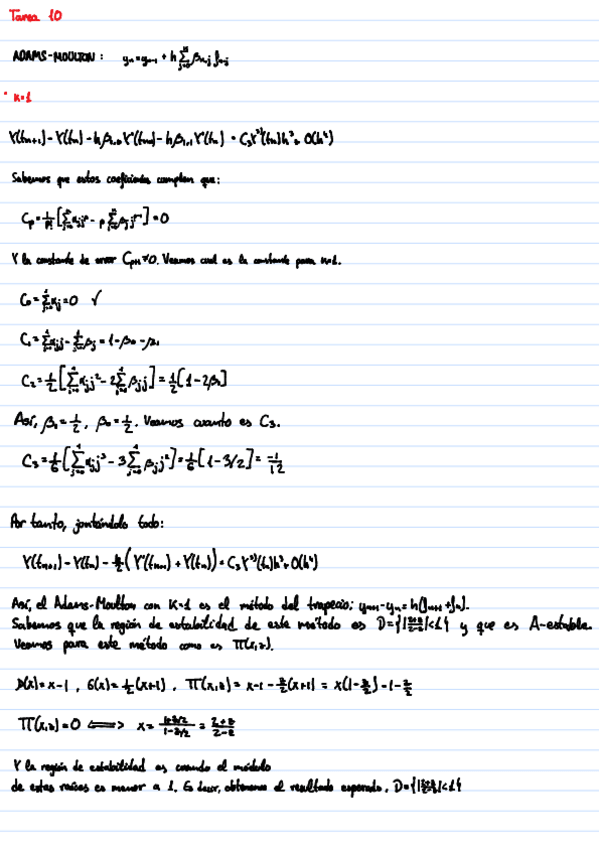 Tarea 10
ADAMS-MOULTON: yₙ = yₙ₋₁ + h Σ βₖ,ⱼ fₙ₋ⱼ
• k=1
Y(tₙ₊₁) - Y(tₙ) - hβ₁,₀ Y'(tₙ₊₁) - hβ₁,₁ Y'(tₙ) = C₃Y³⁾(tₙ)h³ + O(h⁴)
Sabemos que estos coeficientes cumplen que:
Cp = 1/p! [Σ αⱼ jᵖ - p Σ βⱼ jᵖ⁻¹] = 0
Y la constante de error Cp+1 ≠ 0. Veamos cual es la constante para k=1.
C₀ = Σ αⱼ = 0 ✓
C₁ = Σ αⱼ j - Σ βⱼ = 1 - β₀ - β₁
C₂ = 1/2 [Σ αⱼ j² - 2 Σ βⱼ j] = 1/2 [1 - 2β₁]
Así, β₁ = 1/2, β₀ = 1/2. Veamos cuanto es C₃.
C₃ = 1/6 [Σ αⱼ j³ - 3 Σ βⱼ j²] = 1/6 [1 - 3/2] = -1/12
Por tanto, juntándolo todo:
Y(tₙ₊₁) - Y(tₙ) - h/2 (Y'(tₙ₊₁) + Y(tₙ)) = C₃Y³⁾(tₙ)h³ + O(h⁴)
Así, el Adams-Moulton con k=1 es el método del trapecio; yₙ₊₁ - yₙ = h(fₙ₊₁ + fₙ).
Sabemos que la región de estabilidad de este método es D = {|2+z/2-z| < 1} y que es A-estable.
Veamos para este método como es Π(x,z).
ρ(x) = x - 1, σ(x) = 1/2 (x+1), Π(x,z) = x - 1 - z/2 (x+1) = x(1 - z/2) - 1 - z/2
Π(x,z) = 0 ⟺ x = 1+z/2 / 1-z/2 = 2+z / 2-z
Y la región de estabilidad es cuando el módulo
de estas raíces es menor a 1. Es decir, obtenemos el resultado esperado, D = {|2+z/2-z| < 1}